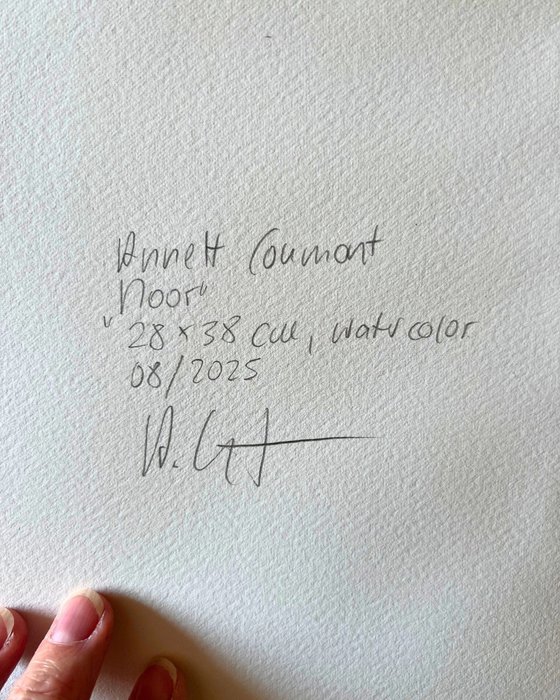 Annett Coumont
"Noor"
28 x 38 cm, watercolor
08/2025